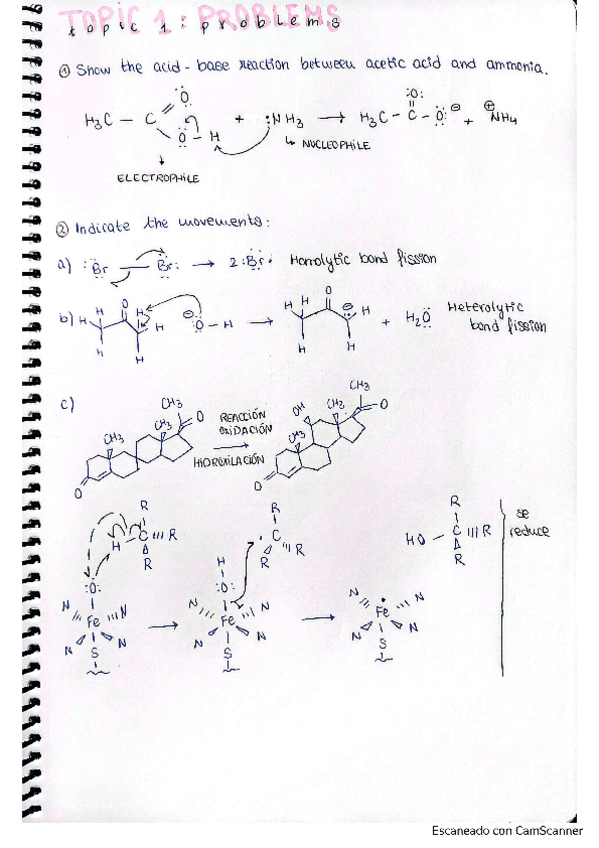 TOPIC 1: PROBLEMS
topic 1: problems
① Show the acid-base reaction between acetic acid and ammonia.
H₃C — C O O — H + :NH₃ → H₃C - C - O ⊖ + ⊕NH₄
:O:
↳ NUCLEOPHILE
↓
ELECTROPHILE
② Indicate the movements:
a) :Br — Br: → 2 :Br· Homolytic bond fission
b) H H H O H H H ⊖ :O - H → H H O ⊖ H H H + H₂O Heterolytic
bond fission
c) CH₃ CH₃ O O REACCIÓN
OXIDACIÓN
HIDROXILACIÓN
→ CH₃ OH CH₃ CH₃ O O
R H — C R R · C R R R HO — C R R R se
reduce
:O: H :O:
N N Fe N N → N N Fe N N → N N Fe N N
S S S
Escaneado con CamScanner